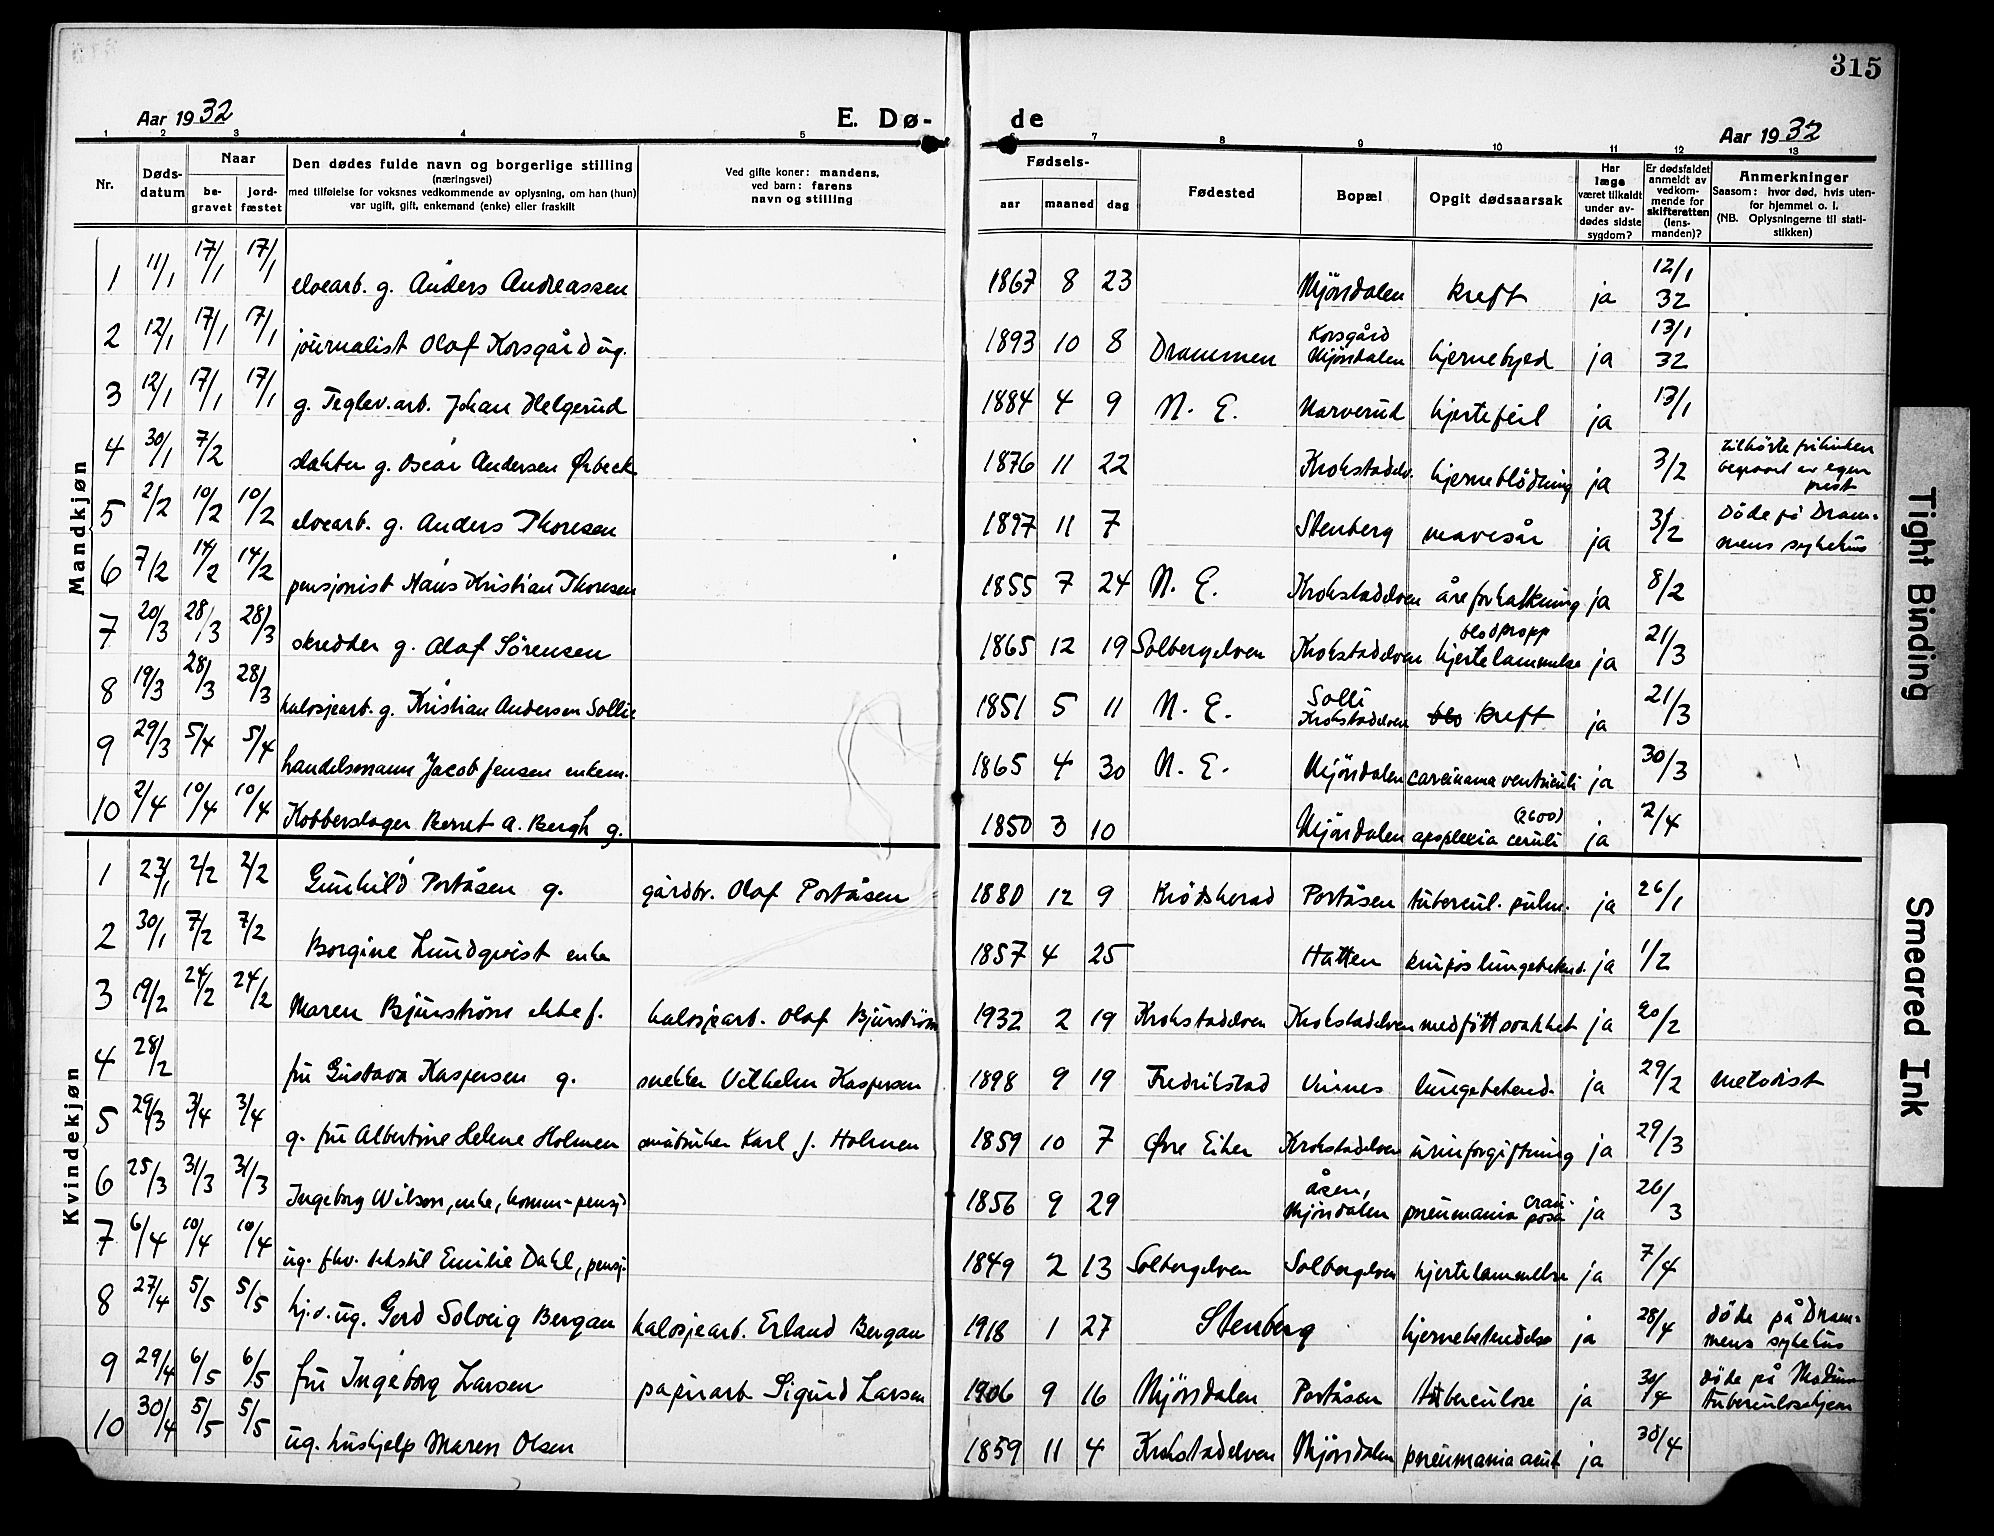 315
Aar 1932 E. Dø- de Aar 1932
1 2 3 4 5 6 7 8 9 10 11 12 13
Nr.
Døds-
datum
Naar
be-
gravet
jord-
fæstet
Den dødes fulde navn og borgerlige stilling
(næringsvei)
med tilføielse for voksnes vedkommende av oplysning, om han (hun)
var ugift, gift, enkemand (enke) eller fraskilt
Ved gifte koner: mandens,
ved barn: farens
navn og stilling
Fødsels-
aar maaned dag
Fødested
Bopæl
Opgit dødsaarsak
Har
læge
været tilkaldt
under av-
dødes sidste
sygdom?
Er dødsfaldet
anmeldt av
vedkom-
mende for
skifteretten
(lens-
manden)?
Anmerkninger
Saasom: hvor død, hvis uten-
for hjemmet o. l.
(NB. Oplysningerne til stati-
stikken)
Mandkjøn
1 11/1 17/1 17/1 elvearb. g. Anders Andreassen 1867 8 23 Mjøndalen kreft ja 12/1 32
2 12/1 17/1 17/1 journalist Olaf Korsgård ug. 1893 10 8 Drammen Korsgård Mjøndalen hjernebyld ja 13/1 32
3 12/1 17/1 17/1 g. Teglv.arb. Johan Helgerud 1884 4 9 N. E. Narverud hjertefeil ja 13/1
4 30/1 7/2 slakter g. Oscar Andersen Ørbeck 1876 11 22 Krokstadelv. hjerneblødning ja 3/2 tilhørte frikirken begravet av egen prest
5 2/2 10/2 10/2 elvearb. g. Anders Thoresen 1897 11 7 Stenberg mavesår ja 3/2 Døde på Drammens sykehus
6 7/2 14/2 14/2 pensjonist Hans Kristian Thoresen 1855 7 24 N. E. Krokstadelven åreforkalkning ja 8/2
7 20/3 28/3 28/3 skredder g. Olaf Sørensen 1865 12 19 Solbergelven Krokstadelven blodpropp hjertelammelse ja 21/3
8 19/3 28/3 28/3 kalosjearb. g. Kristian Andersen Sollie 1851 5 11 N. E. Solli Krokstadelven blo kreft ja 21/3
9 29/3 5/4 5/4 handelsmann Jacob Jensen enkem. 1865 4 30 N. E. Mjøndalen carcinama ventriculi ja 30/3
10 2/4 10/4 10/4 Kobberslager Bernt A. Bergh g. 1850 3 10 Mjøndalen apoplexia ceruli (2600) ja 2/4
Kvindekjøn
1 23/1 2/2 2/2 Gunhild Portåsen g. gårdbr. Olaf Portåsen 1880 12 9 Krødsherad Portåsen tubercul. pulm. ja 26/1
2 30/1 7/2 7/2 Borgine Lundqvist enke 1857 4 25 Hatten krupøs lungebetend. ja 1/2
3 19/2 24/2 24/2 Maren Bjurstrøm ekte f. kalosjearb. Olaf Bjurstrøm 1932 2 19 Krokstadelven Krokstadelven medfött svakhet ja 20/2
4 28/2 fru Gustava Kaspersen g. snekker Vilhelm Kaspersen 1898 9 19 Fredrikstad Vinnes lungebetend. ja 29/2 metodist
5 29/3 3/4 3/4 g. fru Albertine Helene Holmen småbruker Karl J. Holmen 1859 10 7 Øvre Eiker Krokstadelven urinforgiftning ja 29/3
6 25/3 31/3 31/3 Ingeborg Wilson, enke, komm-pensj. 1856 9 29 åsen, Mjøndalen pneumania crouposa ja 26/3
7 6/4 10/4 10/4 ug. fhv. tekstil Emilie Dahl, pensj. 1849 2 13 Solbergelven Solbergelven hjertelammelse ja 7/4
8 27/4 5/5 5/5 hj.v. ug. Gerd Solveig Bergan kalosjearb. Erland Bergan 1918 1 27 Stenberg hjernebetendelse ja 28/4 døde på Drammens sykehus
9 29/4 6/5 6/5 fru Ingeborg Larsen papirarb Sigurd Larsen 1906 9 16 Mjøndalen Portåsen tuberculose ja 30/4 døde på Modum tuberculosehjem
10 30/4 5/5 5/5 ug. hushjelp Maren Olsen 1859 11 4 Krokstadelven Mjøndalen pneumania acut ja 30/4
Tight Binding
Smeared Ink